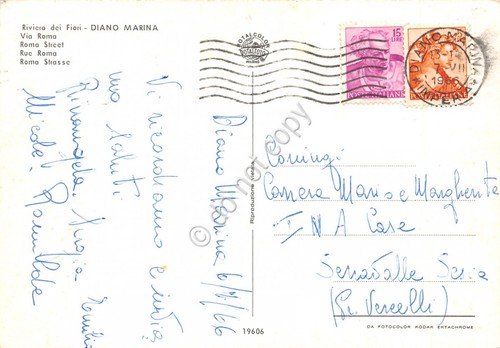 Riviera dei Fiori - DIANO MARINA
Via Roma
Roma Street
Rue Roma
Roma Strasse
ROTALCOLOR
15
LIRE
POSTE ITALIANE
DIANO MARINA
VII
1966
IMPERIA
Vi ricordiamo e invia
mo saluti
Rosangela, Maja Emilia
Nicola, Romilda
Diano Marina 6/7/66
Coniugi
Carrera Mario e Margherita
INA Case
Serravalle Sesia
(Pr. Vercelli)
do not copy
Riproduzione
19606
DA FOTOCOLOR KODAK EKTACHROME